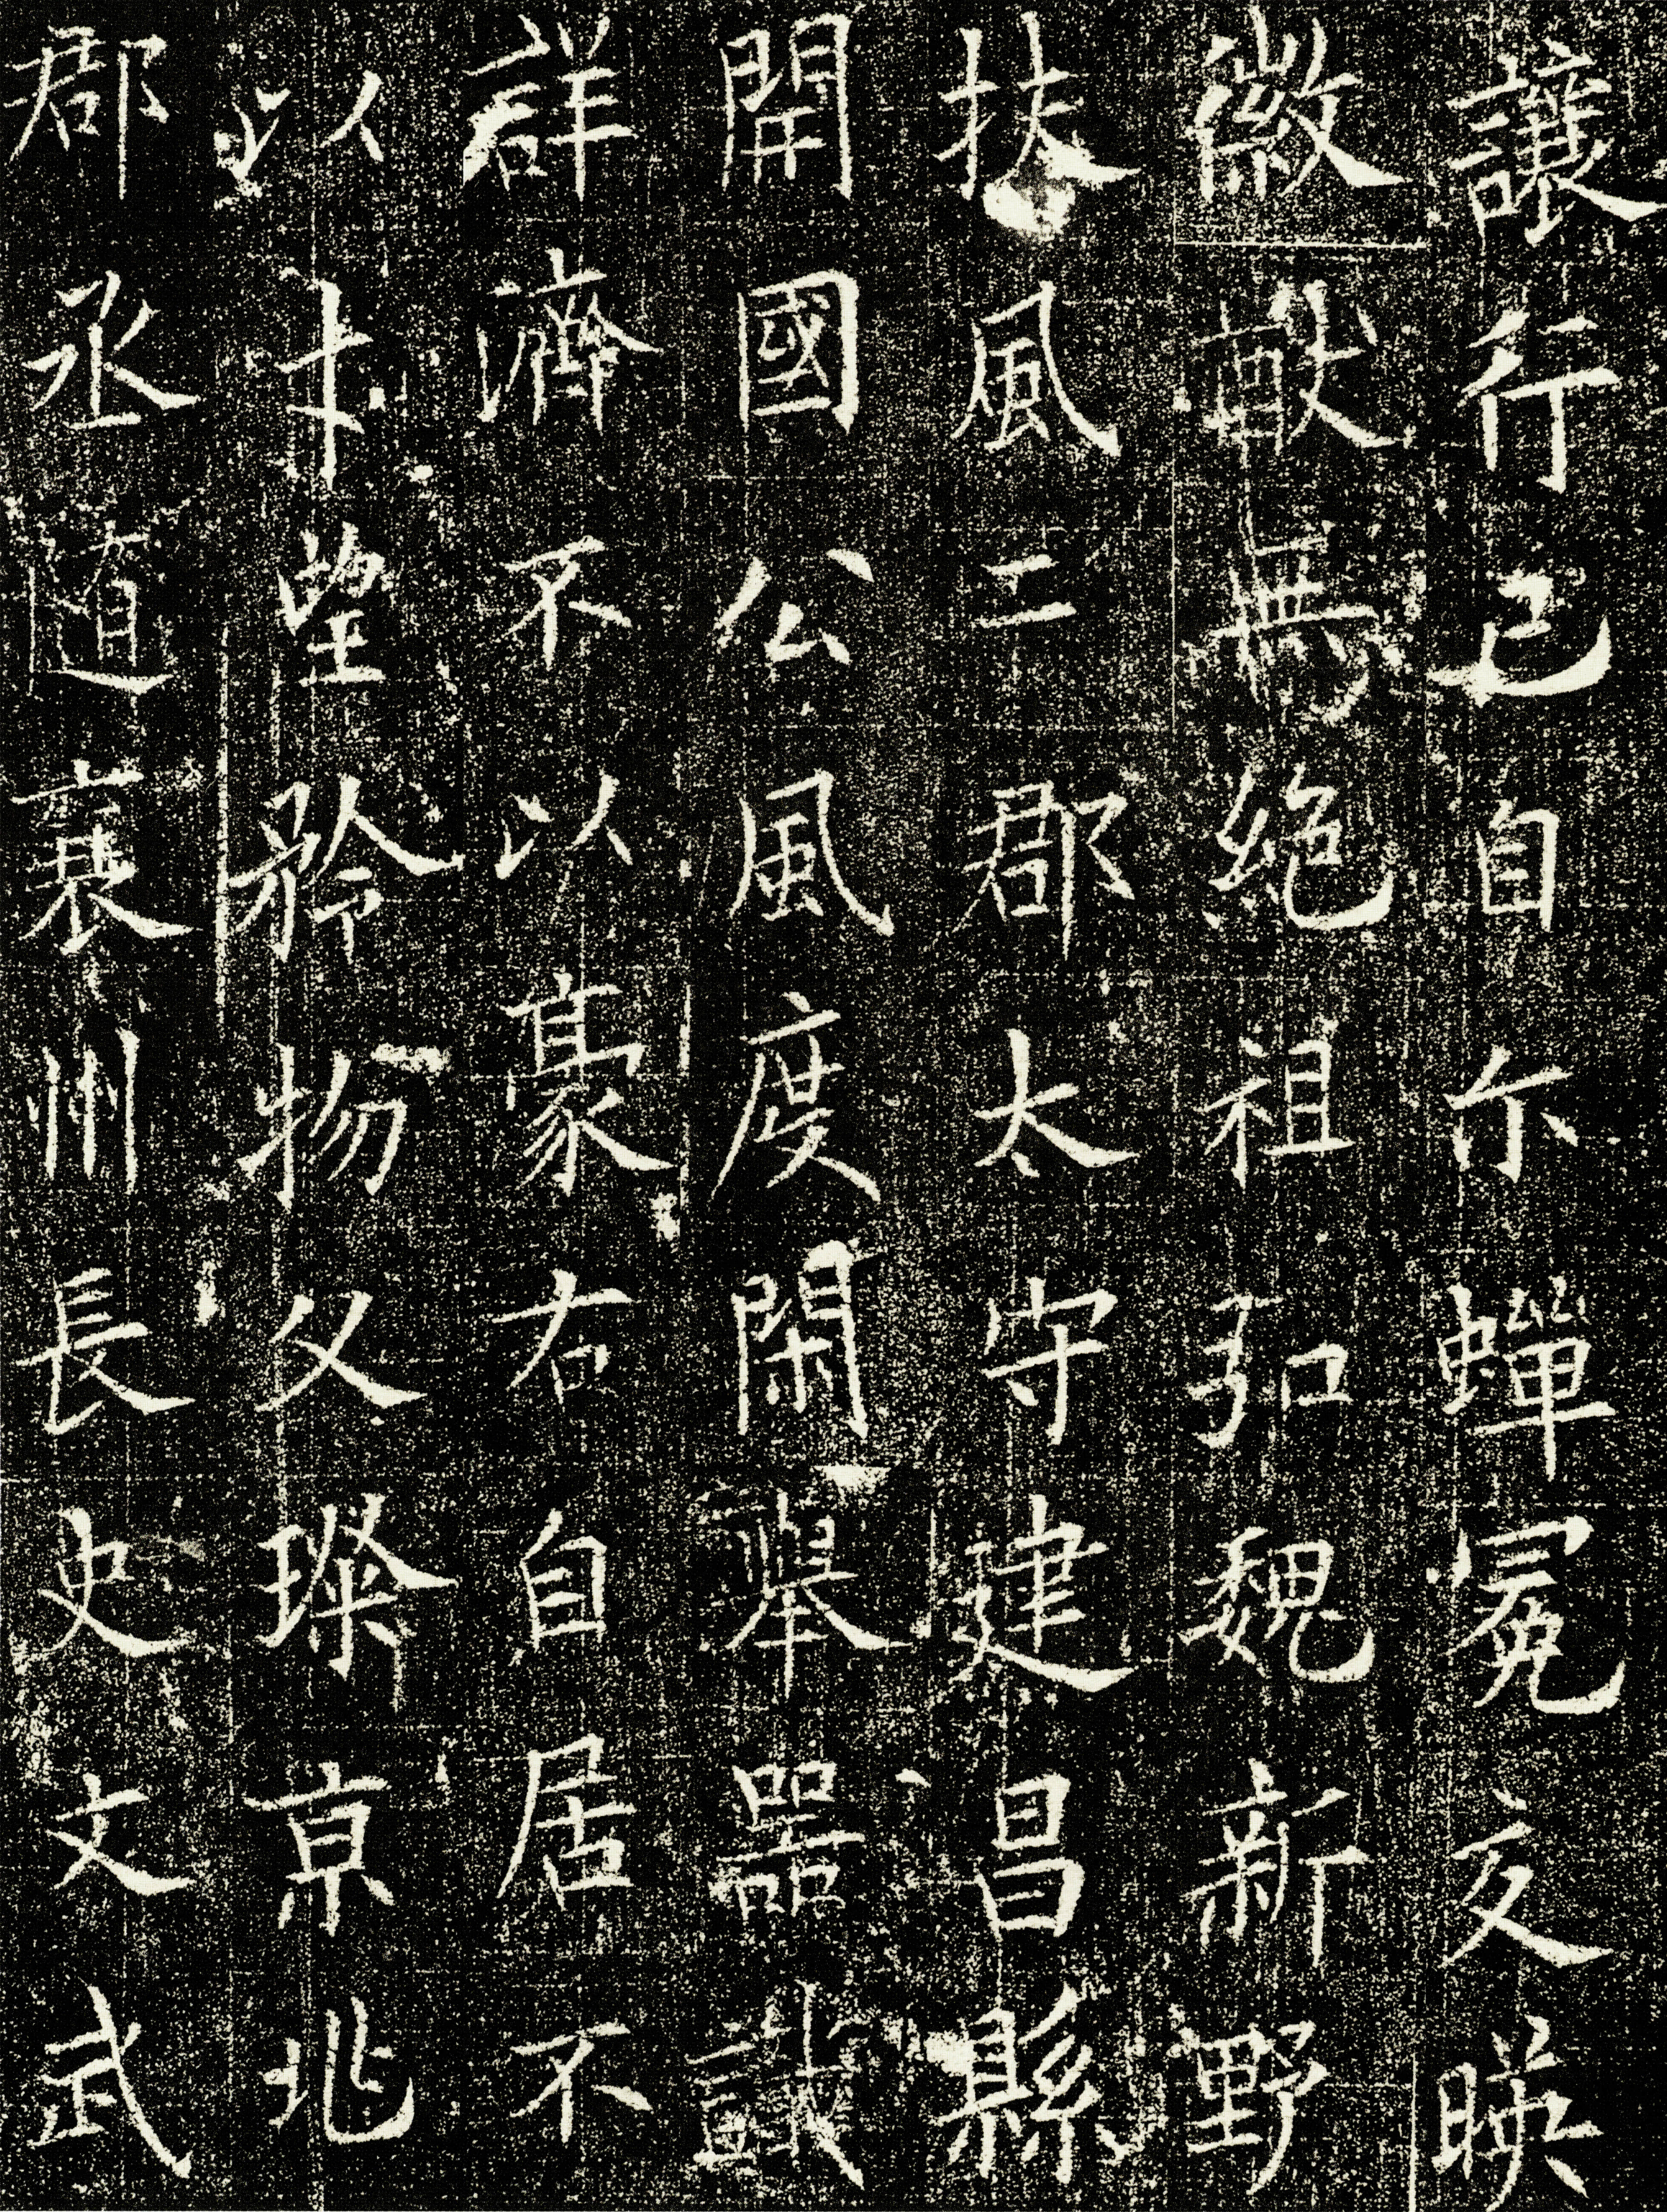 讓行己自尒蟬冕交暎
徽猷無絕祖弘魏新野
扶風二郡太守建昌縣
開國公風度閑舉器識
詳濟不以豪右自居不
以才望矜物父璨京兆
郡丞隨襄州長史文武